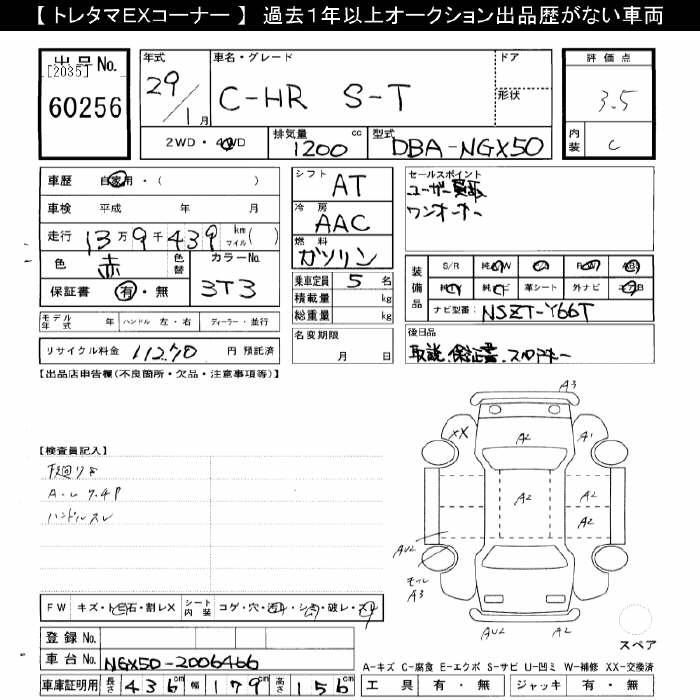 【 トレタマEXコーナー 】 過去１年以上オークション出品歴がない車両
出品No.
[2035]
60256
年式
29/1月
車名・グレード
C-HR S-T
ドア
形状
2WD・4WD
排気量
1200 cc
型式
DBA-NGX50
評価点
3.5
内装
C
車歴 自家用・( )
車検 平成 年 月
走行 13万9千439 km マイル( )
色 赤 色替 カラーNo. 3T3
保証書 有・無
モデル年式 年 ハンドル 左・右 ディーラー・並行
リサイクル料金 11270 円 預託済
シフト AT
冷房 AAC
燃料 ガソリン
乗車定員 5 名
積載量 kg
総重量 kg
名変期限
月 日
セールスポイント
ユーザー買取
ワンオーナー
装備品
S/R
革シート 外ナビ
ナビ型番: NSZT-Y66T
後日品
取説.保証書.スペアキー
【出品店申告欄(不良箇所・欠品・注意事項等)】
【検査員記入】
下廻りサ
ハンドルスレ
FW キズ・飛石・割レX シート内装 コゲ・穴・ ・破レ・
登録No.
車台No. NGX50-2006466
車庫証明用 長さ 436cm 幅 179cm 高さ 156cm
A3
XX A2 A1
A2 A2
A2
AU2
モール
A3
AU2 A2
スペア
A-キズ C-腐食 E-エクボ S-サビ U-凹ミ W-補修 XX-交換済
工具 有・無 ジャッキ 有・無